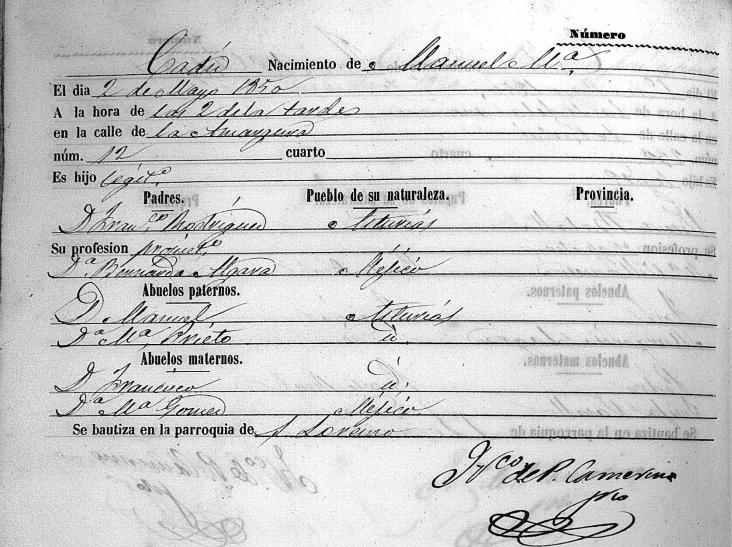 Número
Cadiz Nacimiento de Manuel Mª
El dia 2 de Mayo 1850
A la hora de las 2 de la tarde
en la calle de la Amargura
núm. 12 cuarto
Es hijo legit.º
Padres. Pueblo de su naturaleza. Provincia.
D. Fran.co Rodriguez Asturias
Su profesion propiet.º
D.ª Bernarda Méjico
Abuelos paternos.
D. Manuel Asturias
D.ª Mª Prieto id.
Abuelos maternos.
D. Francisco id.
D.ª Mª Gomez Méjico
Se bautiza en la parroquia de S. Lorenzo
Fco de P. Camerino
pro